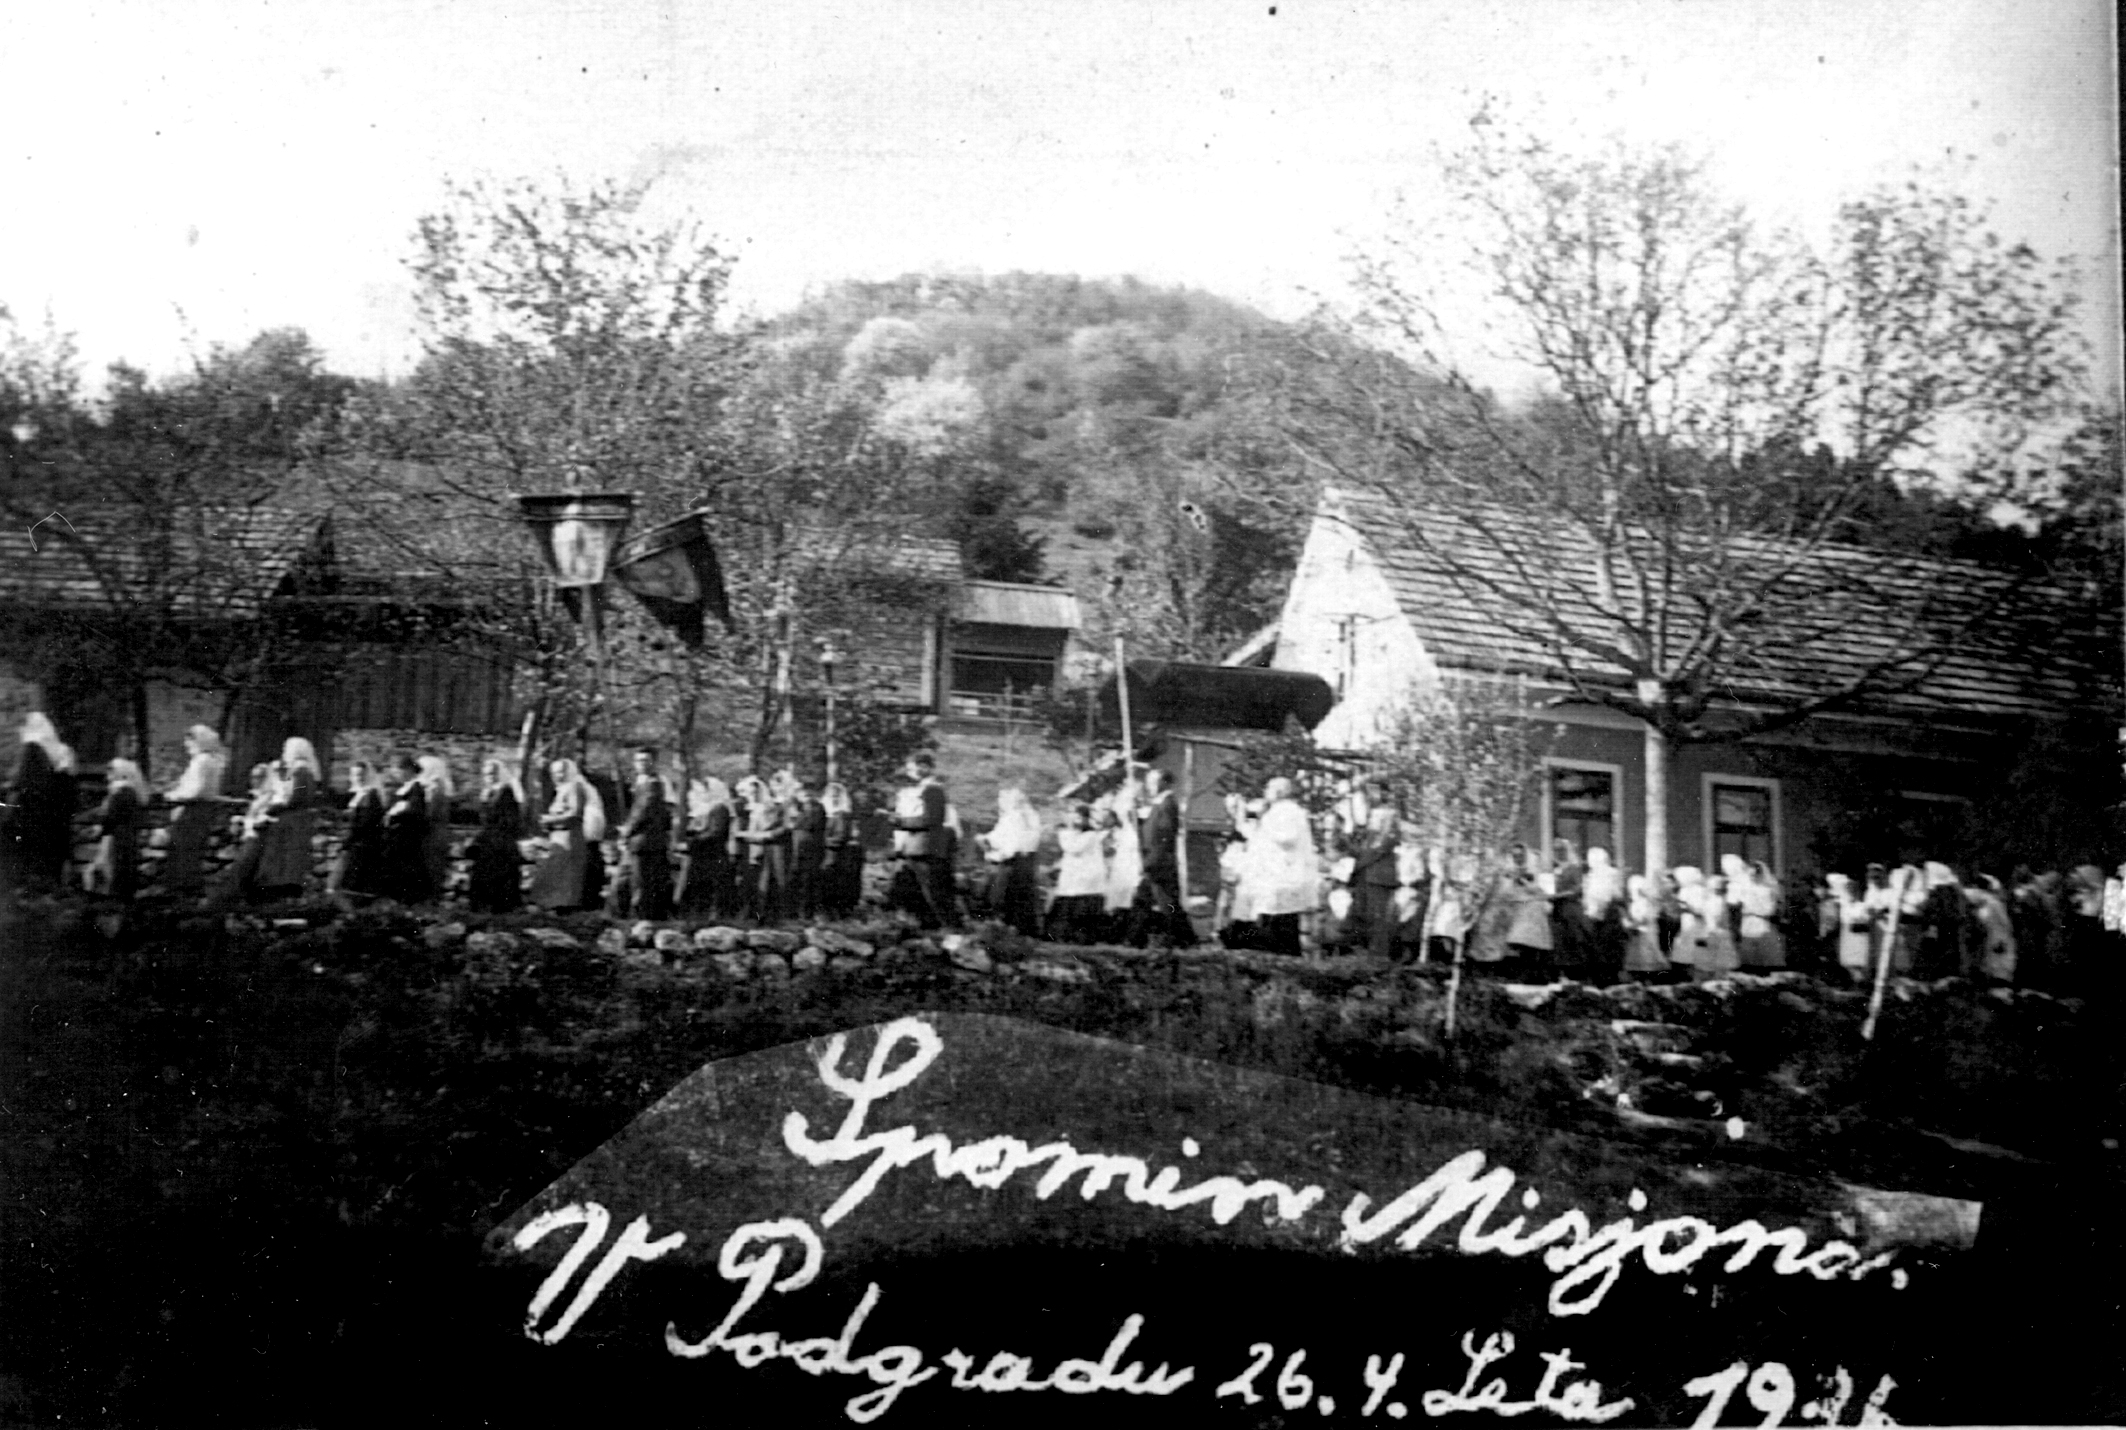 Spomin Misjona.
V Podgradu 26. 4. Leta